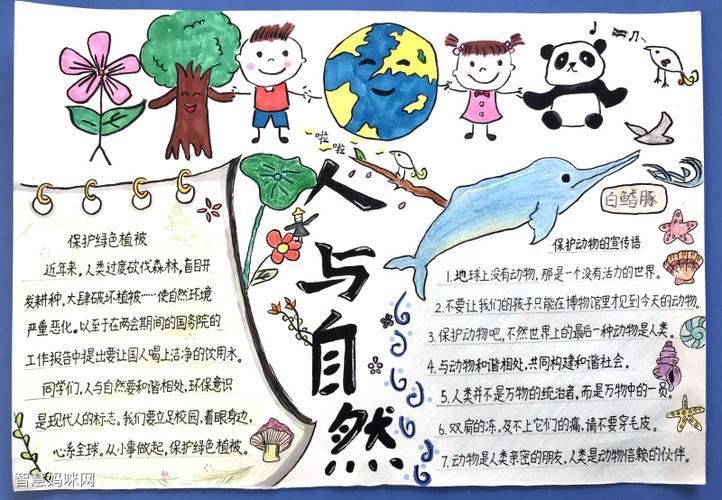 啦
啦
人与自然
白鳍豚
保护绿色植被
近年来,人类过度砍伐森林,盲目开
发耕种,大肆破坏植被……使自然环境
严重恶化。以至于在两会期间的国务院的
工作报告中提出要让国人喝上洁净的饮用水。
同学们,人与自然爱和谐相处,环保意识
是现代人的标志。我们要立足校园,着眼身边,
心系全球。从小事做起,保护绿色植被。
保护动物的宣传语
1.地球上没有动物,那是一个没有活力的世界。
2.不要让我们的孩子只能在博物馆里才见到今天的动物。
3.保护动物吧,不然世界上的最后一种动物是人类。
4.与动物和谐相处,共同构建和谐社会。
5.人类并不是万物的统治者,而是万物中的一员。
6.双肩的冻,及不上它们的痛,请不要穿毛皮。
7.动物是人类亲密的朋友,人类是动物信赖的伙伴。
智慧妈咪网